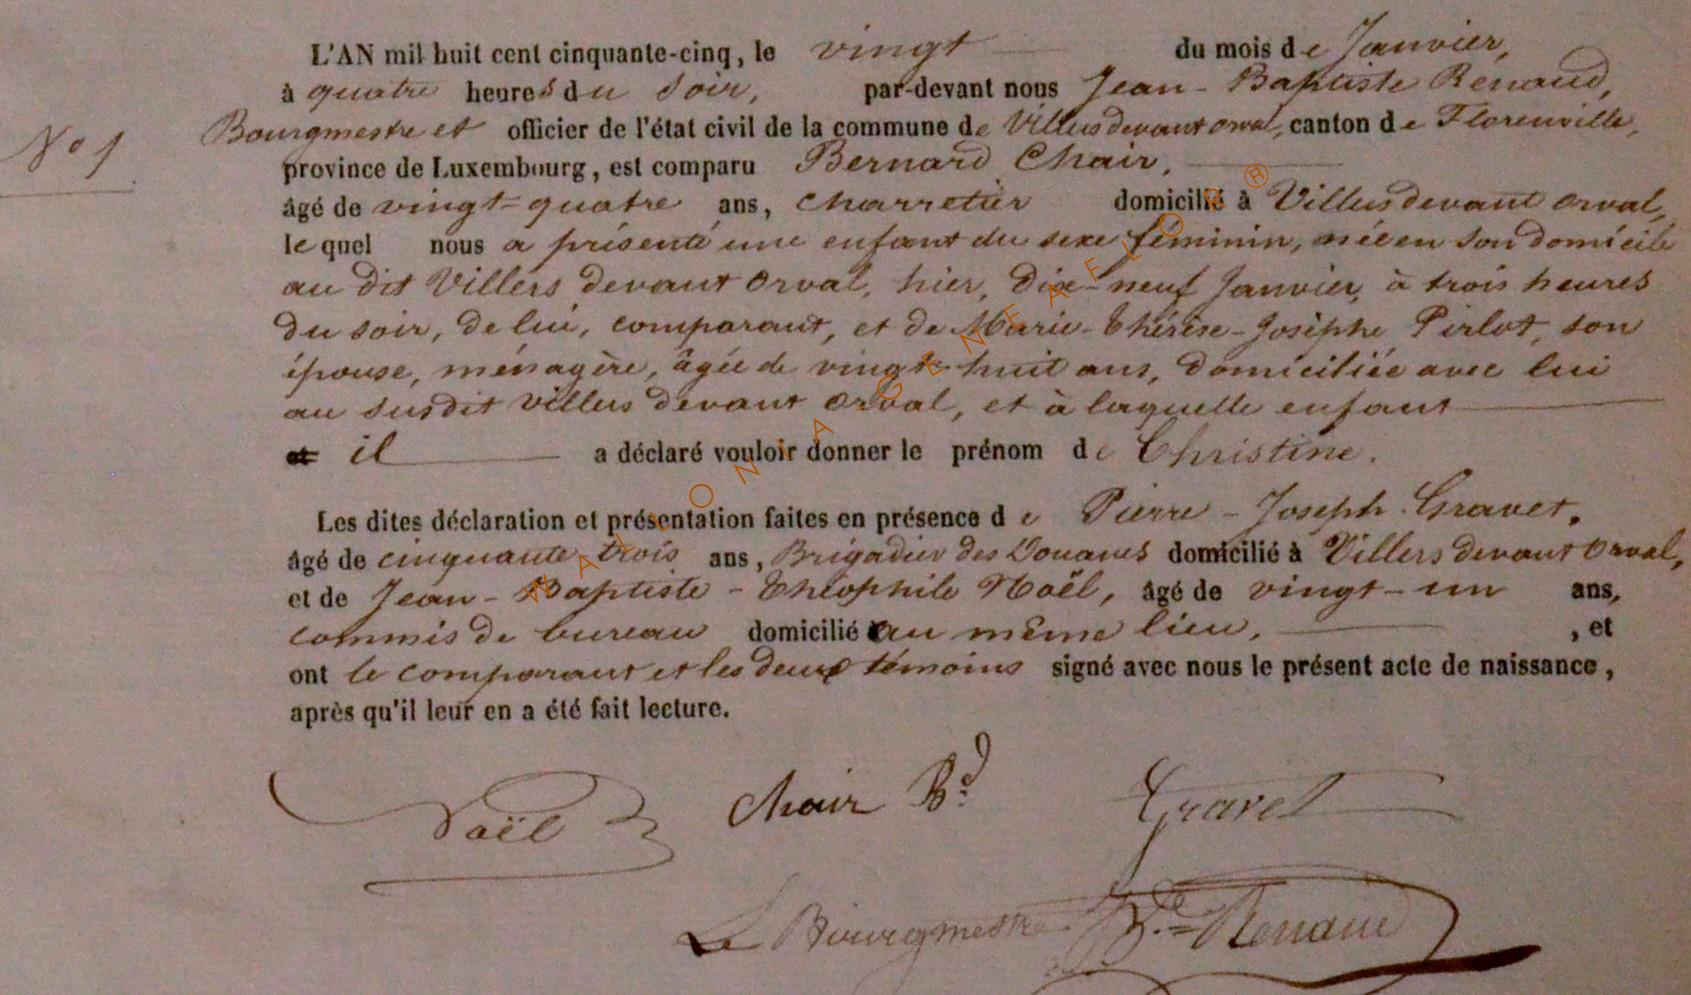 L'AN mil huit cent cinquante-cinq, le vingt du mois de Janvier,
à quatre heures du soir, par-devant nous Jean-Baptiste Renaud,
N° 1
Bourgmestre et officier de l'état civil de la commune de Villers devant orval, canton de Florenville,
province de Luxembourg, est comparu Bernard Chair,
âgé de vingt-quatre ans, charretier domicilié à Villers devant orval,
lequel nous a présenté une enfant du sexe féminin, née en son domicile
au dit Villers devant orval, hier, dix-neuf Janvier, à trois heures
du soir, de lui, comparant, et de Marie-Thérèse-Josèphe Pirlot, son
épouse, ménagère, âgée de vingt-huit ans, domiciliée avec lui
au susdit villers devant orval, et à laquelle enfant
et il a déclaré vouloir donner le prénom de Christine.
Les dites déclaration et présentation faites en présence de Pierre-Joseph Gravet,
âgé de cinquante trois ans, Brigadier des Douanes domicilié à Villers devant orval,
et de Jean-Baptiste-Théophile Noël, âgé de vingt-un ans,
commis de bureau domicilié au même lieu, , et
ont le comparant et les deux témoins signé avec nous le présent acte de naissance,
après qu'il leur en a été fait lecture.
Noël Chair Bd Gravet
Le Bourgmestre JBte Renaud
WALLONIA-GENEAFLOR®